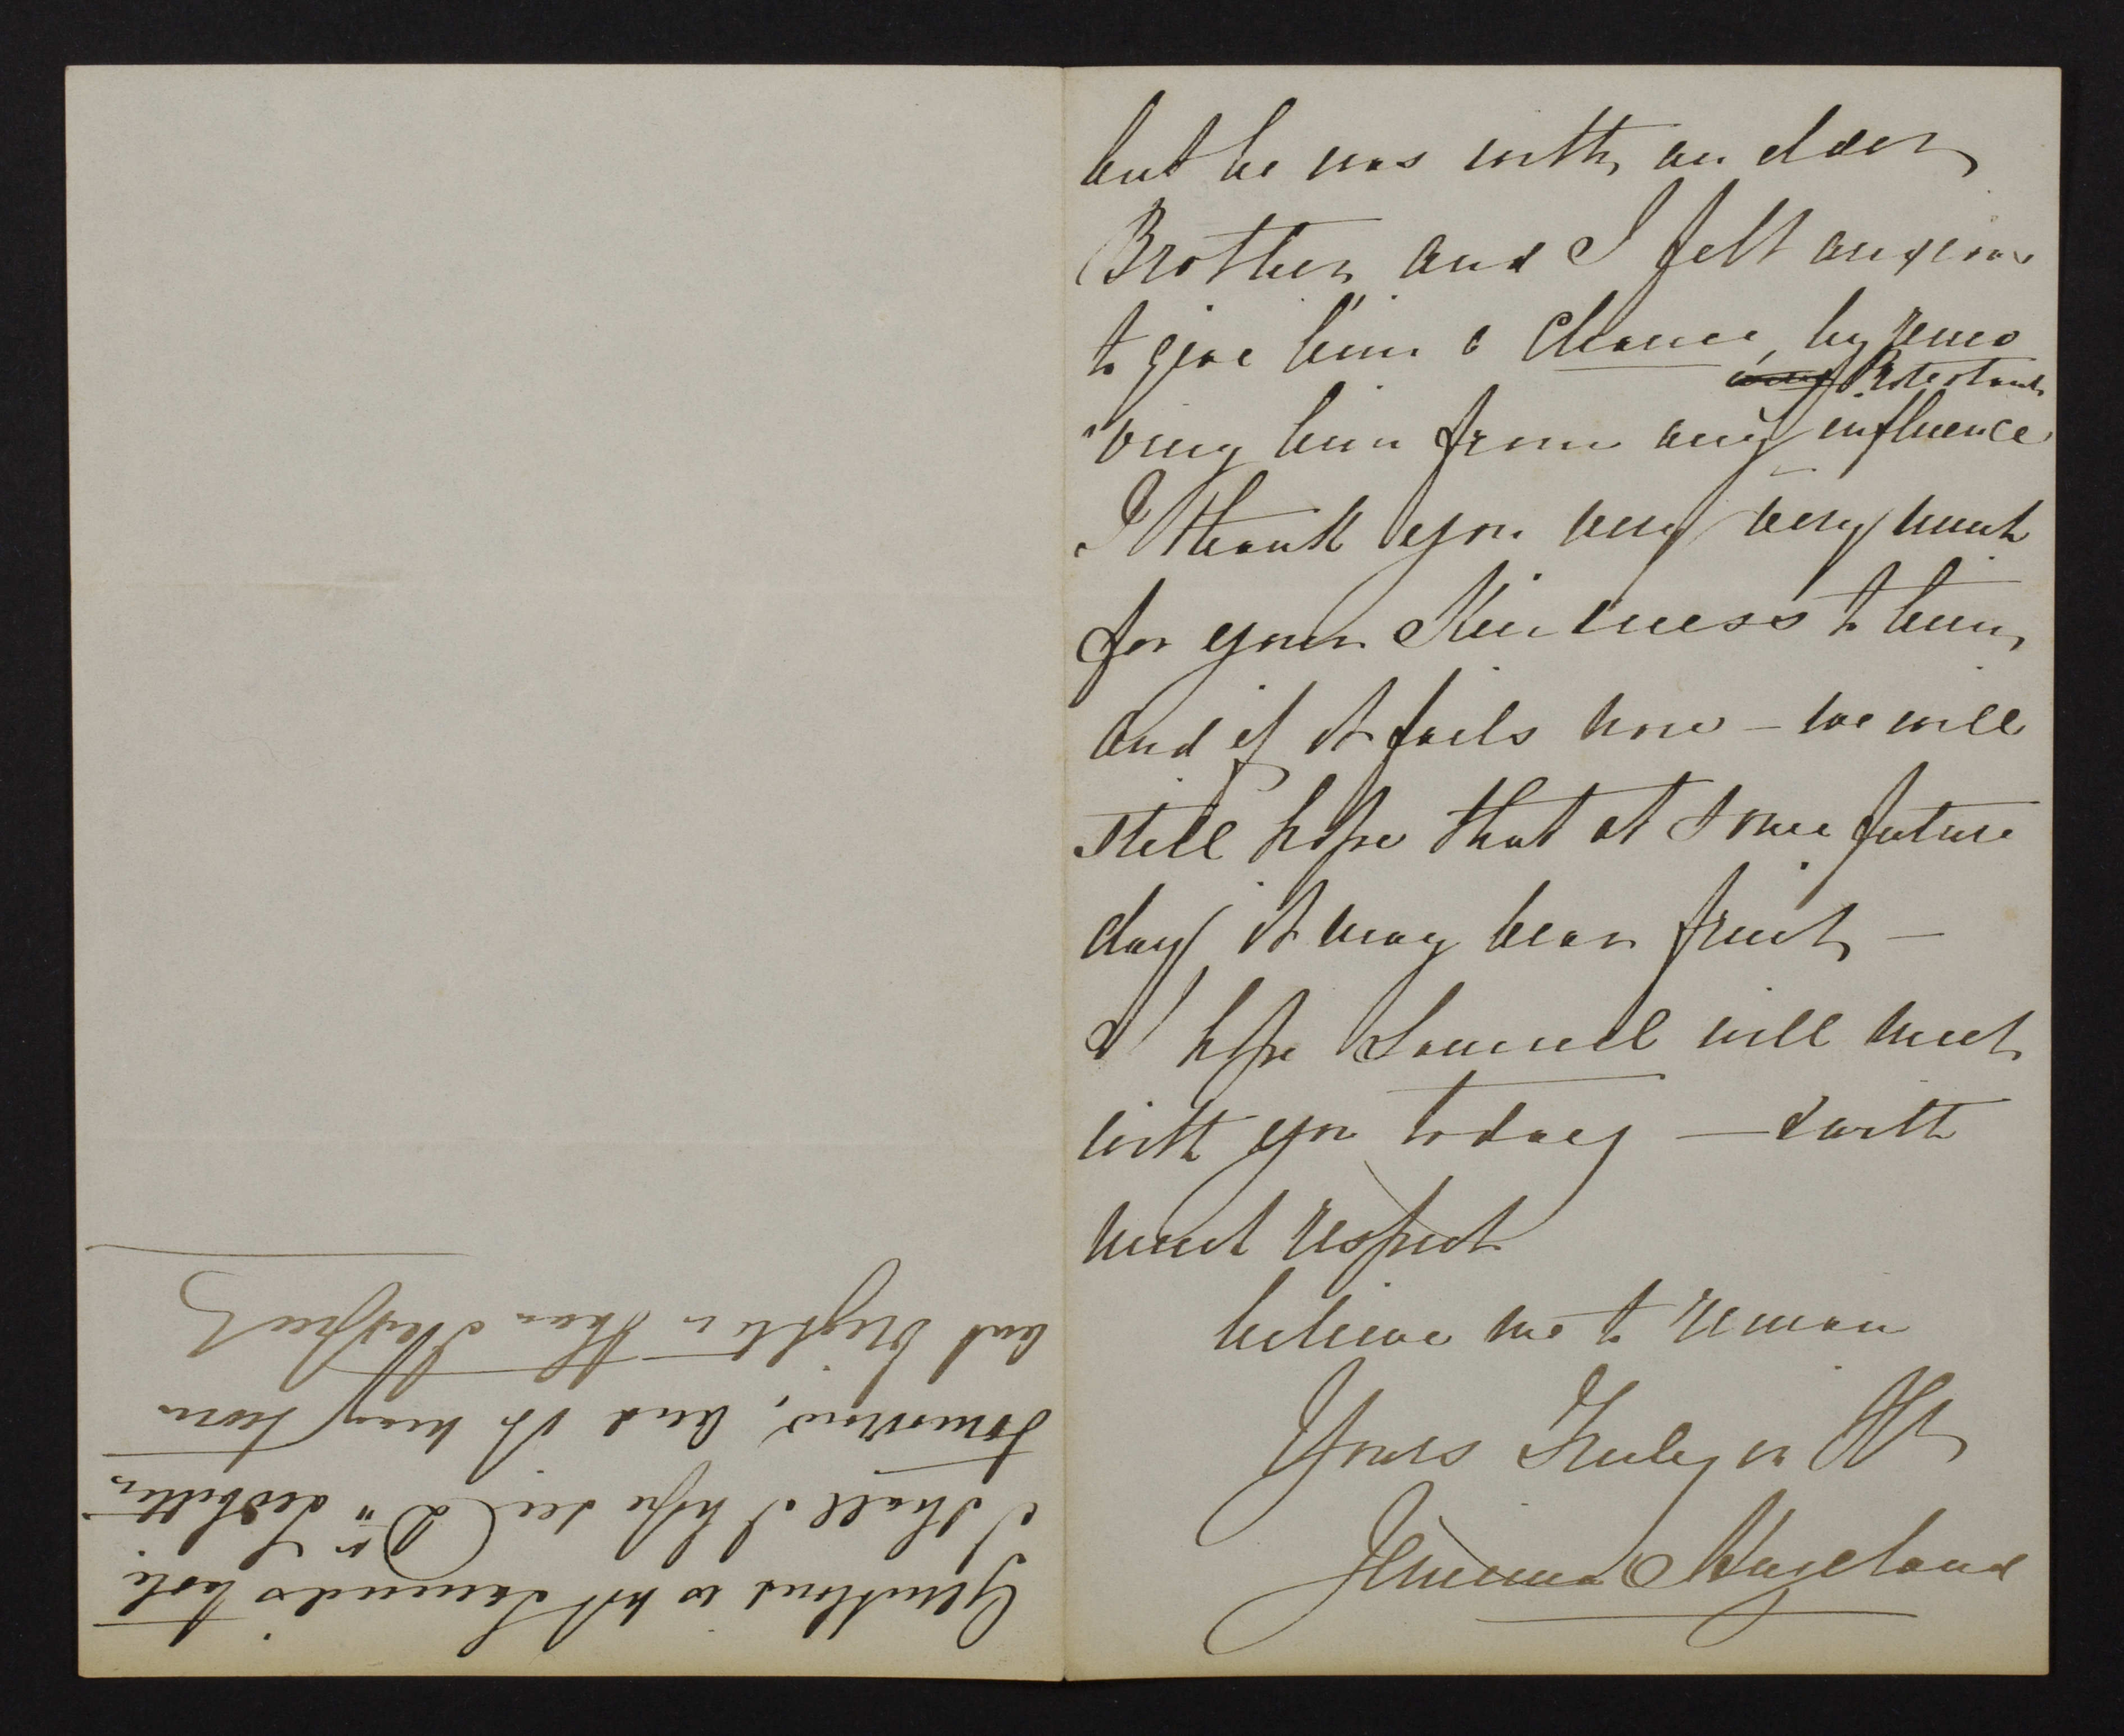 but he was with an elder
Brother and I felt anxious
to give him a Chance, by remo
Protestant
"ving him from any influence
I thank you very very much
for your Kindness to him,
and if it fails now – we will
still hope that at some future
day it may bear fruit –
I hope Samuel will meet
with you today – & with
much respect
believe me to remain
Yours Truly in
Jemima Hazeland
is not Samuel's
I shall I hope see Dr
tomorrow, and it may
but brighter than